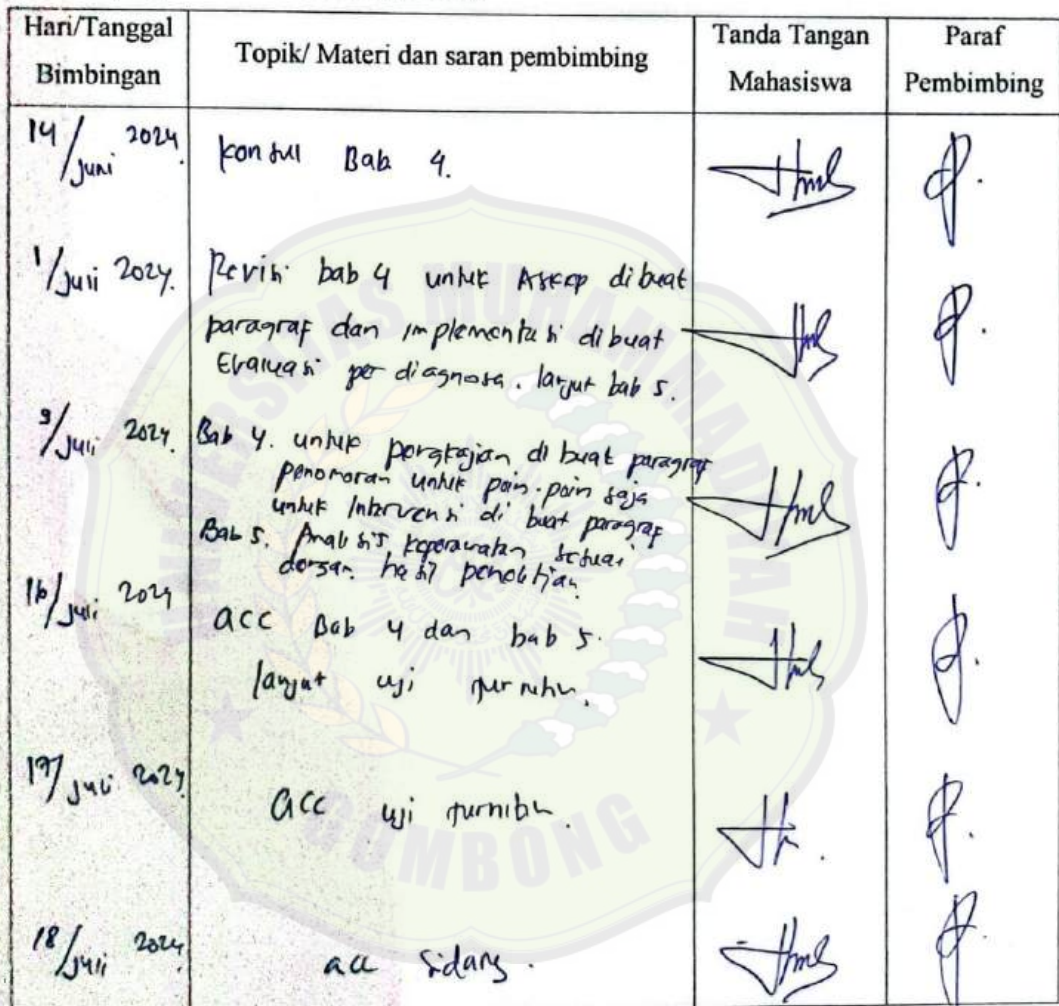 Hari/Tanggal Bimbingan
Topik/ Materi dan saran pembimbing
Tanda Tangan Mahasiswa
Paraf Pembimbing
14/Juni 2024
konsul Bab 4.
1/Juli 2024.
Revisi bab 4 untuk Askep dibuat
paragraf dan implementasi dibuat
Evaluasi per diagnosa. lanjut bab 5.
9/Juli 2024.
Bab 4. untuk pengkajian di buat paragraf
penomoran untuk poin-poin saja
untuk Intervensi di buat paragraf
Bab 5. Analisis keperawatan sesuai
dengan hasil penelitian
16/Juli 2024
acc Bab 4 dan bab 5.
lanjut uji turnitin.
17/Juli 2024
acc uji turnitin.
18/Juli 2024
acc sidang.
UNIVERSITAS MUHAMMADIYAH
GOMBONG